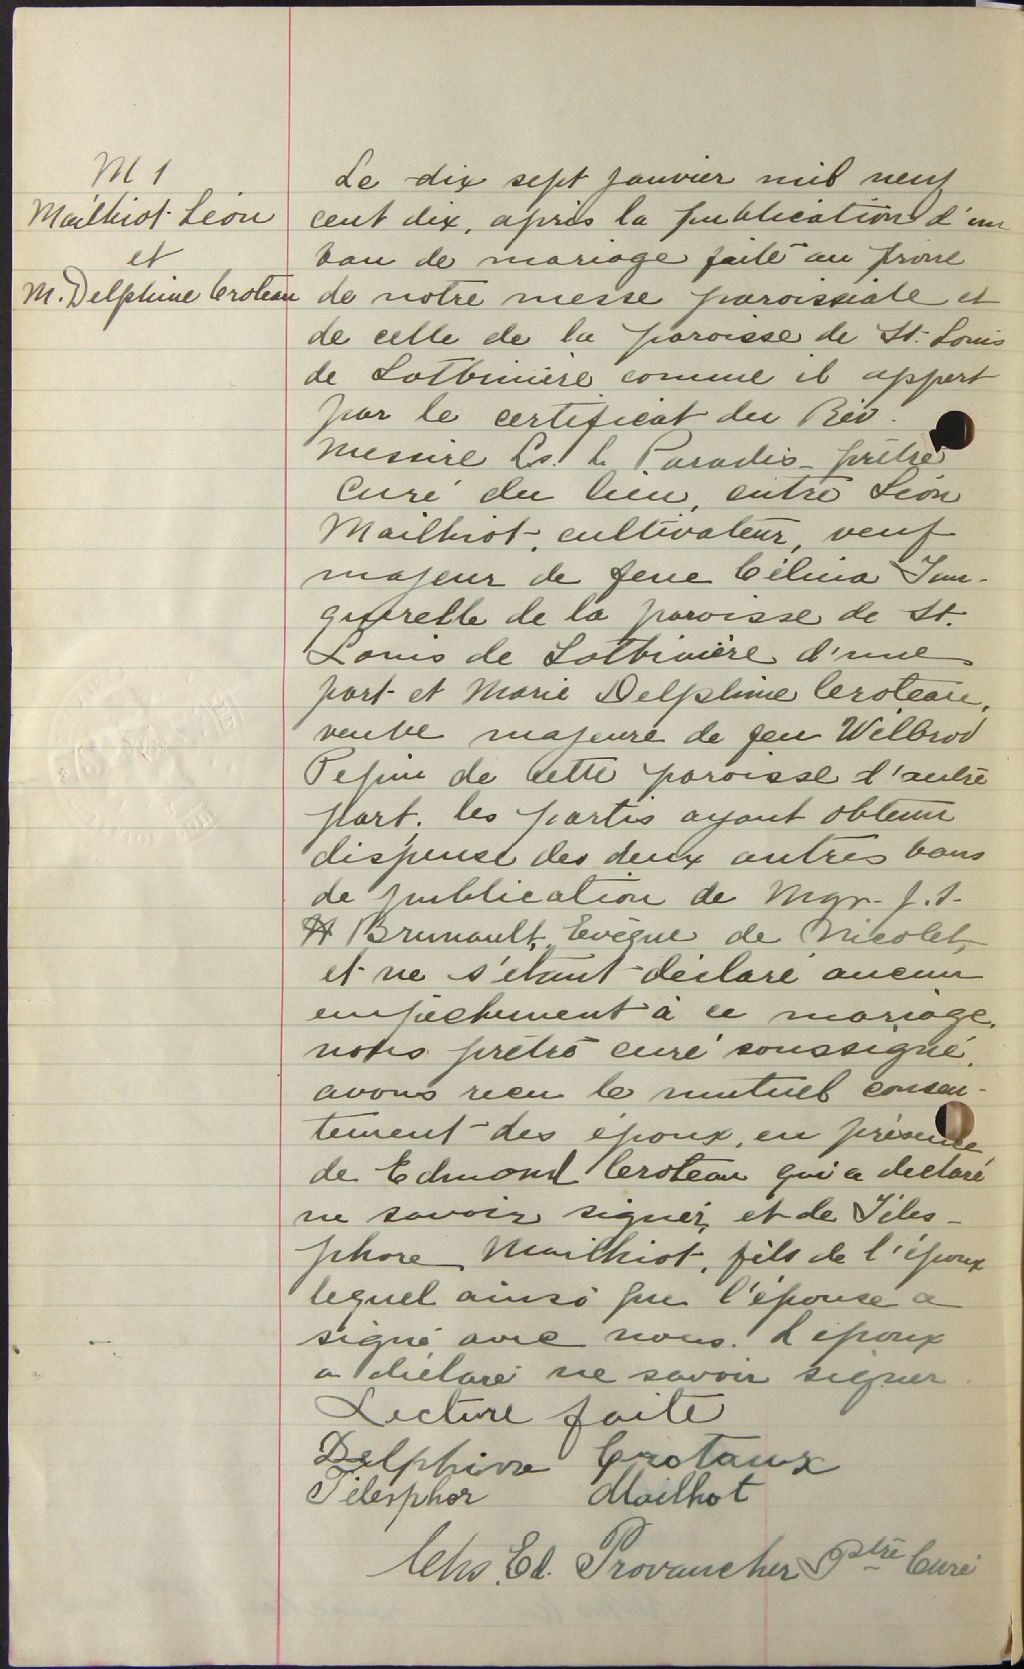 M 1
Mailhiot Léon
et
M. Delphine Croteau
Le dix sept janvier mil neuf
cent dix, après la publication d'un
ban de mariage faite au prone
de notre messe paroissiale et
de celle de la paroisse de St. Louis
de Lotbinière comme il appert
par le certificat du Rév.
Messire Ls. L. Paradis prêtre
Curé du lieu, entre Léon
Mailhiot, cultivateur, veuf
majeur de feue Célina
de la paroisse de St.
Louis de Lotbinière d'une
part et Marie Delphine Croteau,
veuve majeure de feu Wilbrod
Pepin de cette paroisse d'autre
part; les partis ayant obtenu
dispense des deux autres bans
de publication de Mgr. J. S.
H Brunault, Evêque de Nicolet,
et ne s'étant déclaré aucun
empêchement à ce mariage,
nous prêtre curé soussigné,
avons recu le mutuel consen-
tement des époux, en présence
de Edmond Croteau qui a declaré
ne savoir signer, et de Téles-
phore Mailhiot, fils de l'époux
lequel ainsi que l'épouse a
signé avec nous. L'époux
a déclaré ne savoir signer.
Lecture faite
Delphine Crotaux
Télesphor Mailhot
Chs. Ed. Provancher Ptre Curé